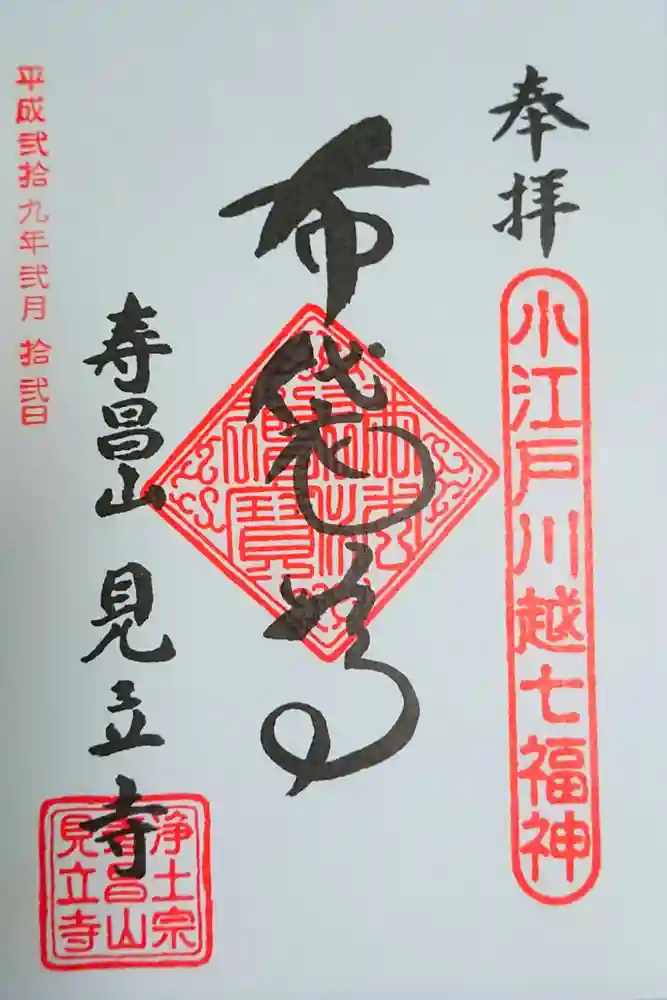 奉拝
小江戸川越七福神
布袋尊
寿昌山 見立寺
浄土宗
寿昌山
見立寺
平成弐拾九年弐月拾弐日